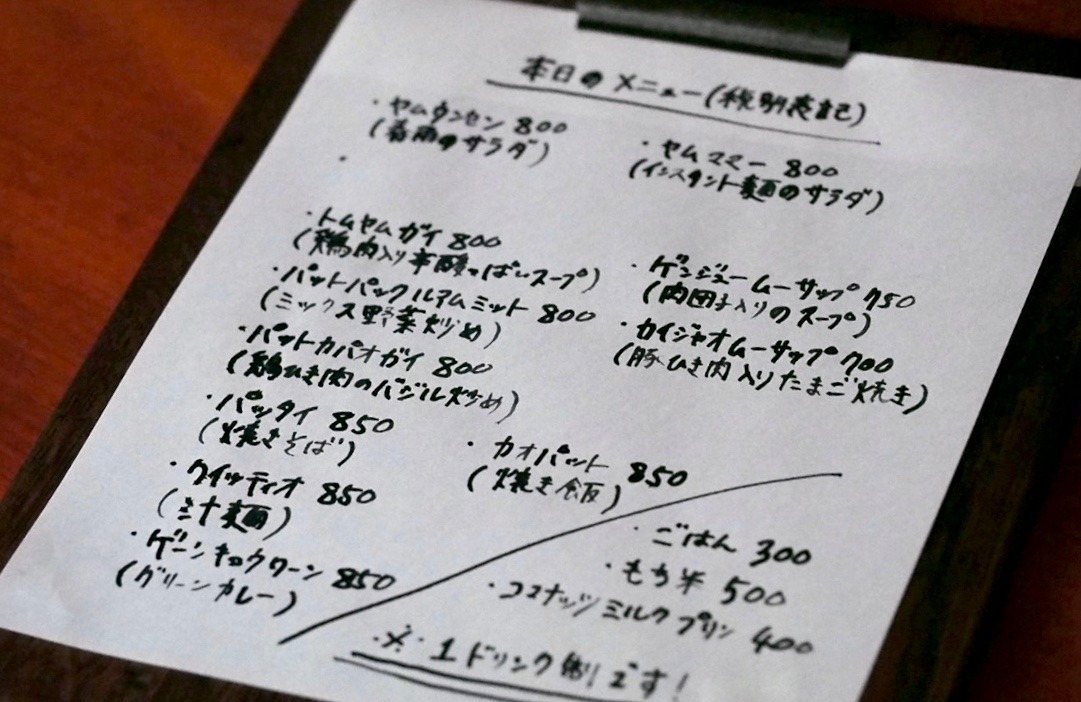 本日のメニュー(税別表記)
・ヤムウンセン 800
(春雨のサラダ)
・ヤムママー 800
(インスタント麺のサラダ)
・トムヤムガイ 800
(鶏肉入り辛酸っぱいスープ)
・ゲンジューームーサップ 750
(肉団子入りのスープ)
・パットパックルアムミット 800
(ミックス野菜炒め)
・カイジャオムーサップ 700
(豚ひき肉入りたまご焼き)
・パットカパオガイ 800
(鶏ひき肉のバジル炒め)
・パッタイ 850
(焼きそば)
・カオパット 850
(焼き飯)
・クイッティオ 850
(汁麺)
・ゲーンキョウワーン 850
(グリーンカレー)
・ごはん 300
・もち米 500
・ココナッツミルクプリン 400
※1ドリンク制です!